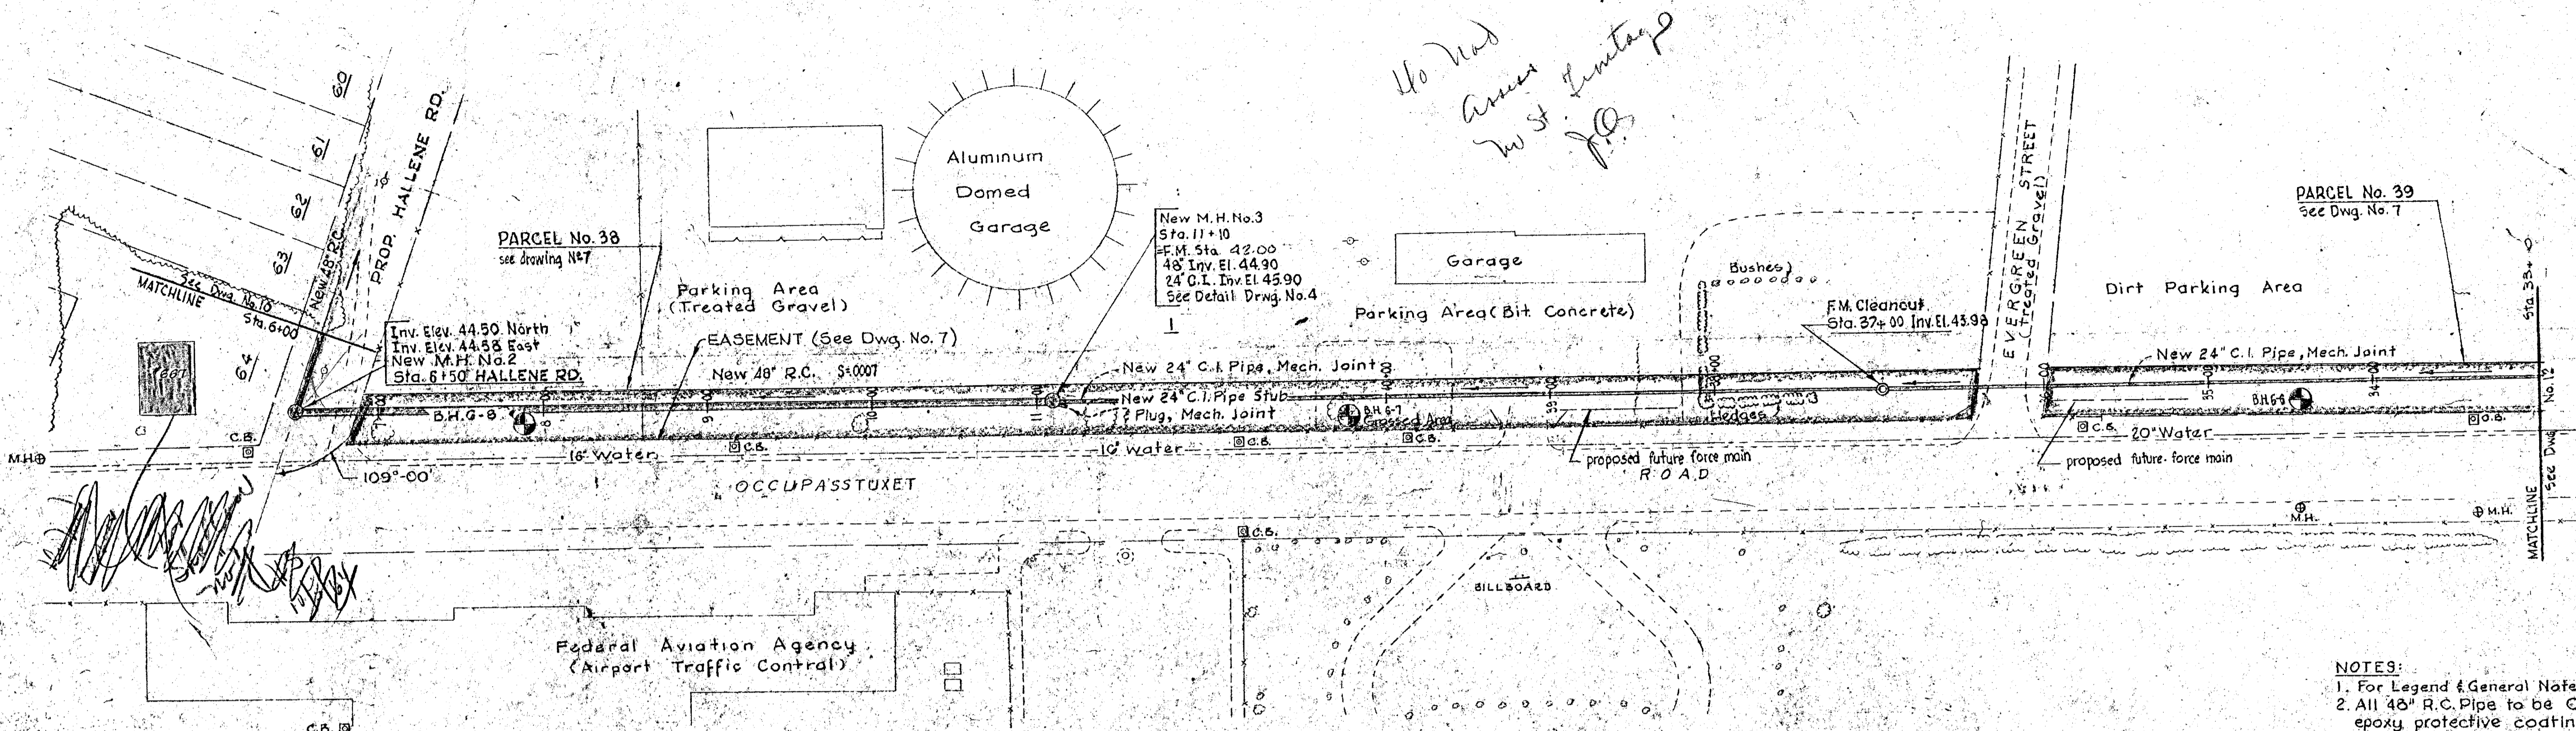 60
61
62
63
64
PROP. HALLENE RD.
New 48" R.C.
See Dwg. No. 10
MATCHLINE
Sta. 6+00
Inv. Elev. 44.50 North
Inv. Elev. 44.58 East
New M.H. No. 2
Sta. 6+50 HALLENE RD.
PARCEL No. 38
see drawing No 7
Parking Area
(Treated Gravel)
EASEMENT (See Dwg. No. 7)
New 48" R.C. S=.0007
Aluminum
Domed
Garage
New M.H. No.3
Sta. 11+10
=F.M. Sta. 42.00
48" Inv. El. 44.90
24" C.I. Inv. El. 45.90
See Detail Drwg. No.4
St. Frontage
Garage
Parking Area (Bit. Concrete)
Bushes
F.M. Cleanout
Sta. 37+00 Inv. El. 43.98
EVERGREEN STREET
(Treated Gravel)
PARCEL No. 39
See Dwg. No. 7
Dirt Parking Area
New 24" C.I. Pipe, Mech. Joint
New 24" C.I. Pipe, Mech. Joint
New 24" C.I. Pipe Stub
& Plug, Mech. Joint
B.H. G-8
8
9
10
11
B.H. 6-7
Grassed Area
Hedges
35+00
34+00
B.H. 6-6
C.B.
C.B.
C.B.
C.B.
C.B.
C.B.
M.H.
16" Water
16" Water
20" Water
109°-00'
OCCUPASSTUXET
ROAD
proposed future force main
proposed future force main
C.B.
M.H.
M.H.
MATCHLINE
See Dwg No. 12
BILLBOARD
Federal Aviation Agency
(Airport Traffic Control)
C.B.
NOTES:
1. For Legend & General Note
2. All 48" R.C. Pipe to be
epoxy protective coatin